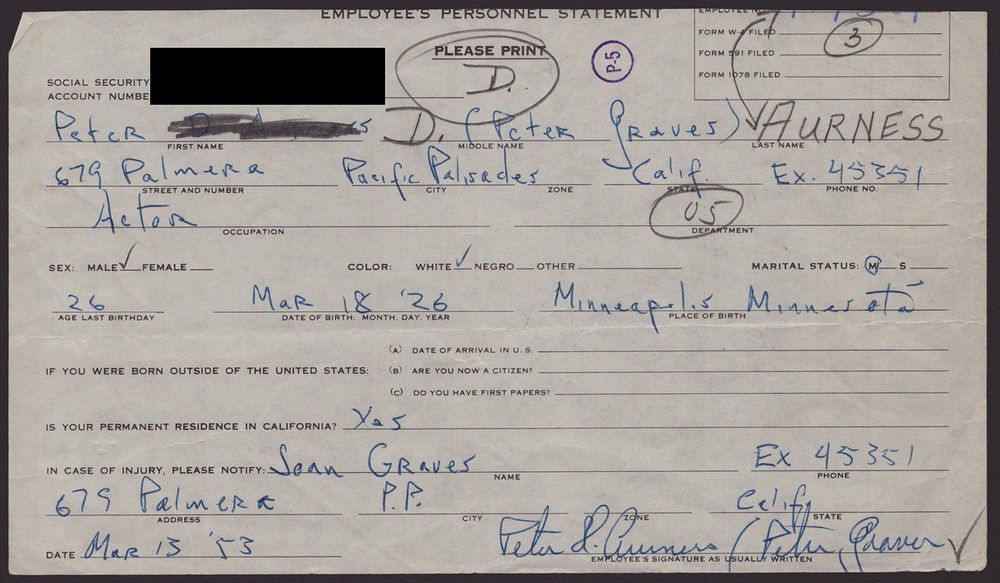 EMPLOYEE'S PERSONNEL STATEMENT
EMPLOYEE NO.
PLEASE PRINT
D.
P-5
FORM W-4 FILED 3
FORM 591 FILED
FORM 1078 FILED
SOCIAL SECURITY
ACCOUNT NUMBE
Peter D. (Peter Graves) AURNESS
FIRST NAME MIDDLE NAME LAST NAME
679 Palmera Pacific Palisades Calif. Ex. 45351
STREET AND NUMBER CITY ZONE STATE PHONE NO.
Actor 05
OCCUPATION DEPARTMENT
SEX: MALE ✓ FEMALE COLOR: WHITE ✓ NEGRO OTHER MARITAL STATUS: M S
26 Mar 18 '26 Minneapolis Minnesota
AGE LAST BIRTHDAY DATE OF BIRTH: MONTH. DAY. YEAR PLACE OF BIRTH
(A) DATE OF ARRIVAL IN U. S.
IF YOU WERE BORN OUTSIDE OF THE UNITED STATES: (B) ARE YOU NOW A CITIZEN?
(C) DO YOU HAVE FIRST PAPERS?
IS YOUR PERMANENT RESIDENCE IN CALIFORNIA? Yes
IN CASE OF INJURY, PLEASE NOTIFY: Joan Graves Ex 45351
NAME PHONE
679 Palmera P.P. Calif
ADDRESS CITY ZONE STATE
DATE Mar 13 '53 Peter D. Aurness / Peter Graves ✓
EMPLOYEE'S SIGNATURE AS USUALLY WRITTEN